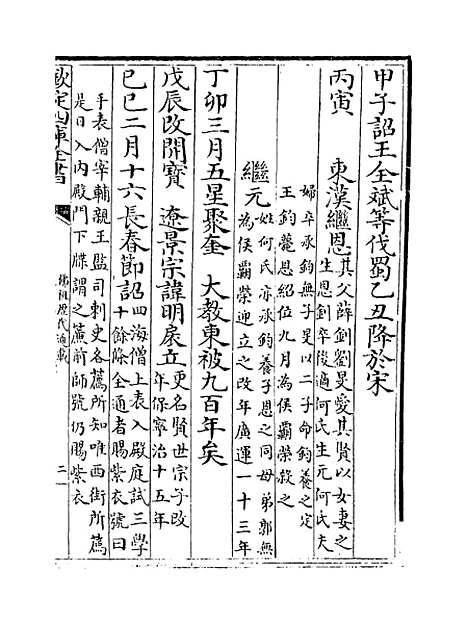 甲子詔王全斌等伐蜀乙丑降於宋
丙寅　東漢繼恩其父薛釗劉旻愛其賢以女妻之
生恩釗卒後適何氏生元何氏夫
婦卒承鈞無子旻以二子命鈞養之定
王鈞薨恩紹位九月為侯霸榮殺之
繼元姓何氏亦承鈞養子恩之同母弟郭無
為侯霸榮迎立之改年廣運一十三年
丁卯三月五星聚奎　大教東被九百年矣
戊辰改開寶　遼景宗諱明扆立更名賢世宗子改
年保寧治十五年
己巳二月十六長春節詔四海僧上表入殿庭試三學
十餘條全通者賜紫衣號曰
手表僧宰輔親王監司刺史各薦所知唯西街所薦
是日入內殿門下牒謂之簾前師號仍賜紫衣
欽定四庫全書
佛祖歷代通載
二